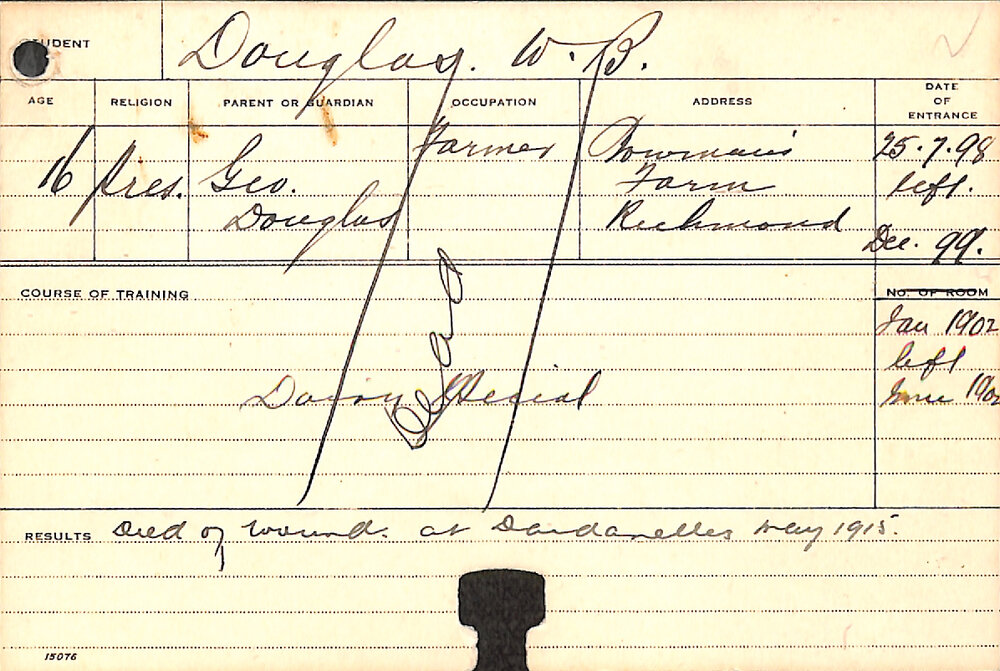 STUDENT Douglas. W. B.
AGE RELIGION PARENT OR GUARDIAN OCCUPATION ADDRESS DATE OF ENTRANCE
16 Pres. Geo. Douglas Farmer Bowman's Farm Richmond 25.7.98 left. Dec. 99.
COURSE OF TRAINING NO. OF ROOM
Jan 1902
left
June 1902
Dead
Dairy Special
RESULTS Died of wounds at Dardanelles May 1915.
15076